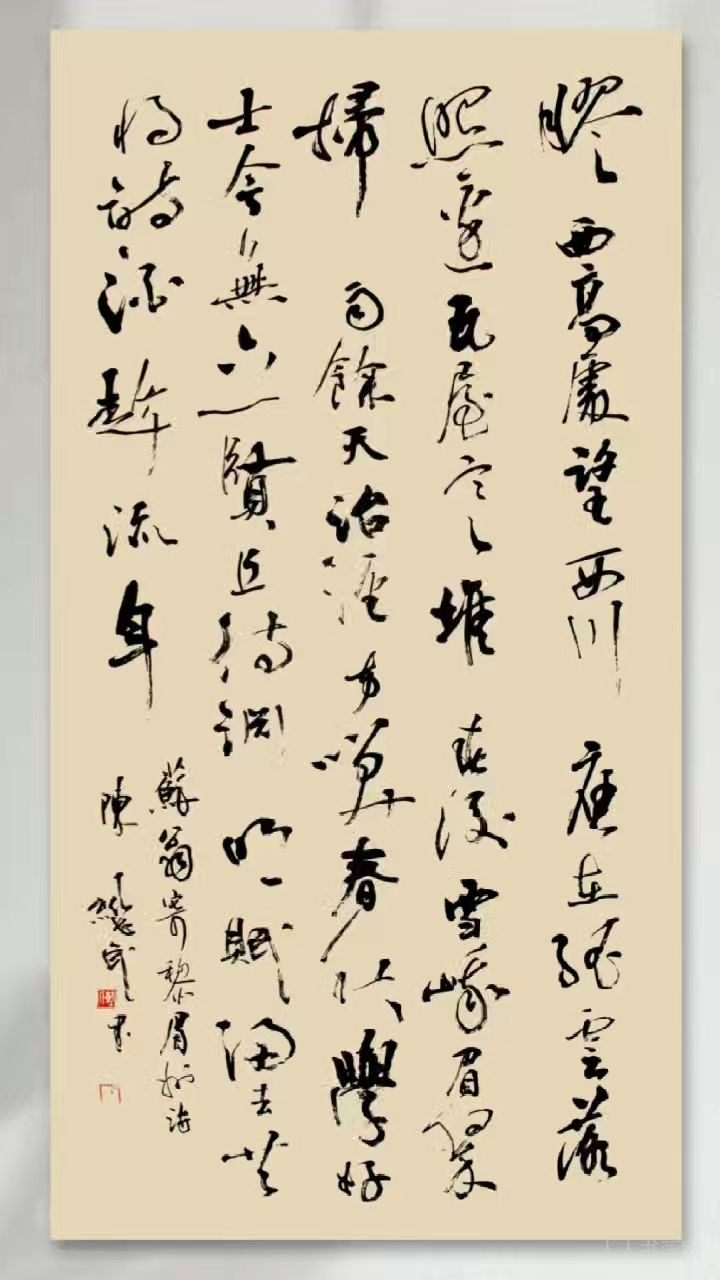 膠西高處望西川應在孤雲落
照邊瓦屋寒堆春後雪峨眉翠
掃雨餘天治經方笑春秋學好
士今無六一賢且待淵明賦歸去共
將詩酒趁流年
蘇翁寄黎眉州詩
陳